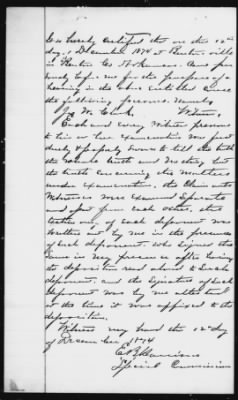 hereby certified the on the 12th
day of December 1874 at Benton ville
in Benton Co Arkansas. Came per
sonely before me for the purpose of a
hearing in the above entitled cause
the following persons. Namely
Jas M. Clark, Witness
Each and every Witness previous
to his or her examination was first
duely & properly sworn to tell the truth
the whole truth and nothing but
the truth concerning the matters
under examination, the Claimants
Witnesses were examined Separate
and apart from Each other. the
testimony of Each deponent was
written out by me in the presence
of Each deponent. Who signed the
same in my presence after having
the deposition read aloud to Each
deponent. and the Signature of Each
deponent was by me attested
at the time it was affixed to the
deposition.
Witness my hand this 12 day
of December 1874
Special Commissioner